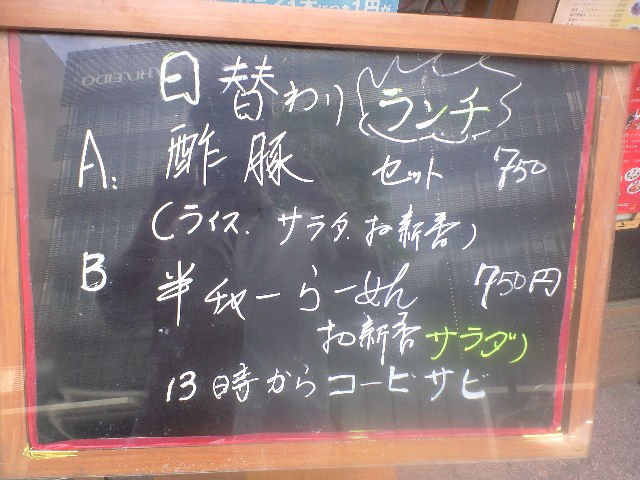 日替わり ランチ
A: 酢豚 セット 750
(ライス、サラダ、お新香)
B 半チャーらーめん 750円
お新香 サラダ)
13時からコーヒサビ